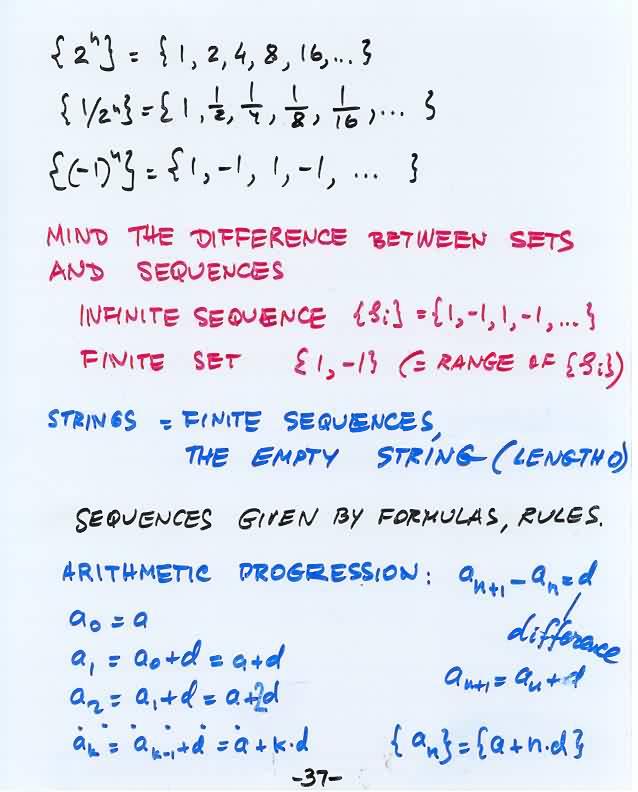 {2ⁿ} = {1, 2, 4, 8, 16, ...}
{1/2ⁿ} = {1, 1/2, 1/4, 1/8, 1/16, ... }
{(-1)ⁿ} = {1, -1, 1, -1, ... }
MIND THE DIFFERENCE BETWEEN SETS
AND SEQUENCES
INFINITE SEQUENCE {Sᵢ} = {1, -1, 1, -1, ...}
FINITE SET {1, -1} (= RANGE OF {Sᵢ})
STRINGS = FINITE SEQUENCES,
THE EMPTY STRING (LENGTH 0)
SEQUENCES GIVEN BY FORMULAS, RULES.
ARITHMETIC PROGRESSION: aₙ₊₁ - aₙ = d
a₀ = a
difference
a₁ = a₀ + d = a + d
aₙ₊₁ = aₙ + d
a₂ = a₁ + d = a + 2d
aₖ = aₖ₋₁ + d = a + k·d {aₙ} = {a + n·d}
-37-